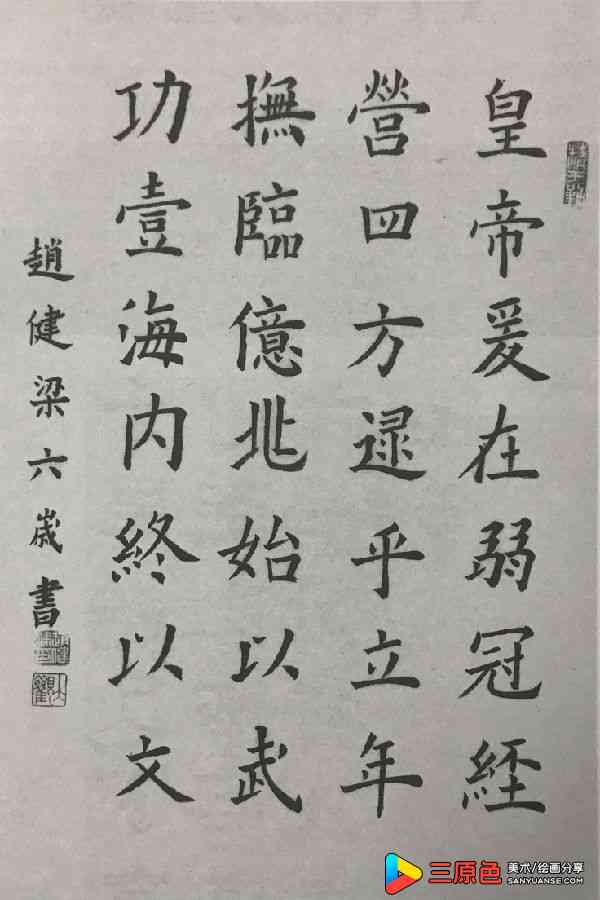 皇帝爰在弱冠經
營四方逯乎立年
撫臨億兆始以武
功壹海内終以文
趙健梁六歲書
三原色 美术/绘画分享
SANYUANSE.COM